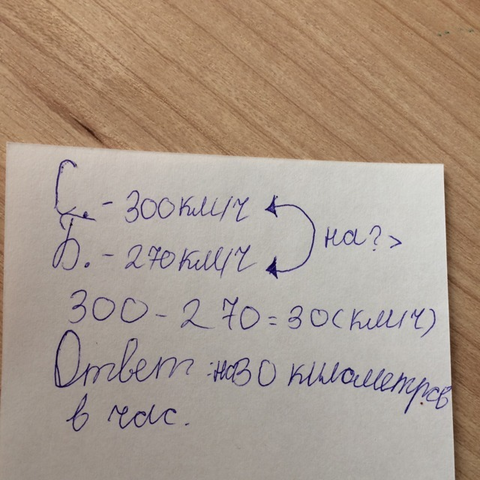 С. - 300 км/ч
на? >
Б. - 270 км/ч
300 - 270 = 30 (км/ч)
Ответ: на 30 километров
в час.